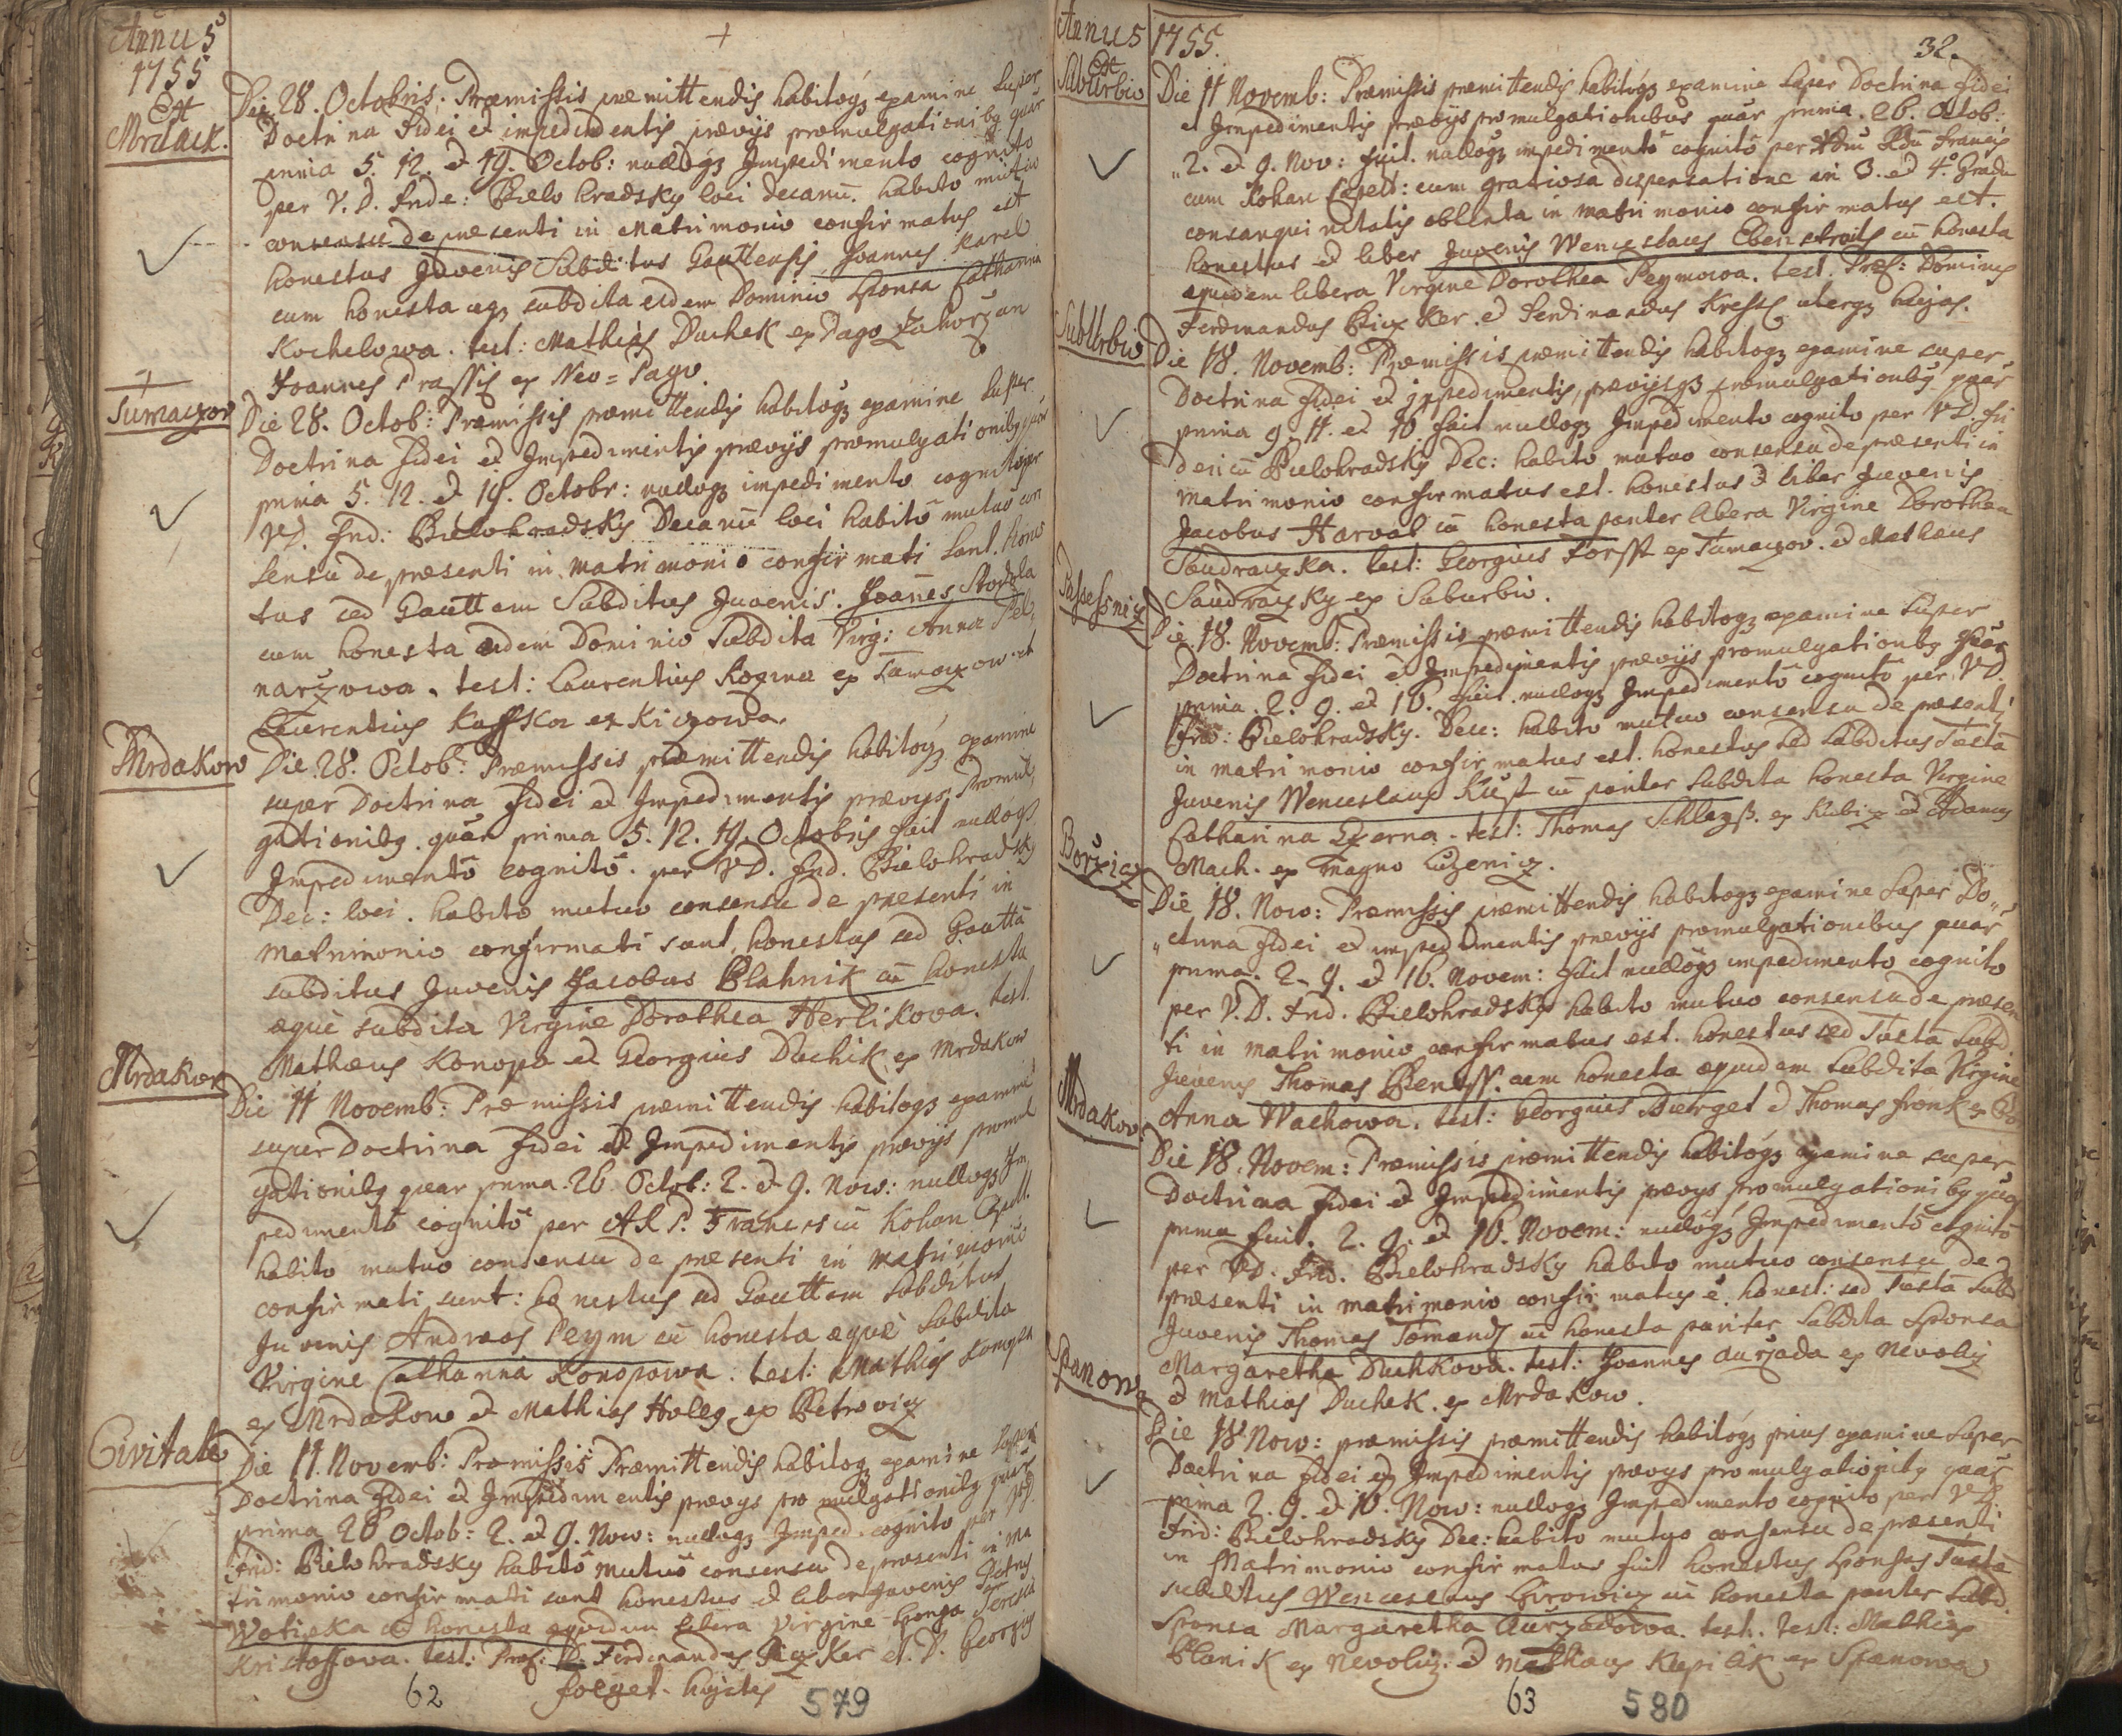 Annus
1755
Ex
Mrdack.
Die 28. Octobris: Præmissis præmittendis habitoqz examine super
Doctrina fidei et impedimentis prævijs promulgationibg quar
prima 5. 12. et 19. Octob: nulloqz Impedimento cognito
per V. D. Fride: Bielohradsky loci Decanū. habito mutuo
consensu de præsenti in Matrimonio confirmatus est
honestus Juvenis Subditus Gauttensis Joannes Karel
cum honesta æqz subdita eidem Dominio Sponsa Catharina
Kochelowa. test: Mathias Duchek ex Pago Zahorzan
Joannes Prassis ex Neo=Pago.
Tumaczov
Die 28. Octob: Præmissis præmittendis habitoqz examine super
Doctrina fidei et Impedimentis prævijs promulgationibg quar
prima 5. 12. et 19. Octobr: nulloqz impedimento cognito per
VD. Frid: Bielohradsky Decanū loci habitō mutuō con
sensu de præsenti in Matrimonio confirmati sunt. hones
tus ad Gauttam Subditus Juvenis Joañes Stodola
cum honesta eidem Dominio Subdita Virg: Anna Pel
narzowa. test: Laurentius Rozma ex Tumaczow et
Laurentius Kasska ex Kiczowa.
Mrdakow
Die 28. Octob: Præmissis præmittendis habitoqz examine
super Doctrina fidei et Impedimentis prævijs Promul
gationibg quar prima 5. 12. 19. Octobris fuit nulloqz
Impedimentō cognitō per VD. Frid. Bielohradsky
Dec: loci. habito mutuo consensu de præsenti in
Matrimonio confirmati sunt honestus ad Gauttā
subditus Juvenis Jacobus Blahnik cū honesta
æquè subdita Virgine Dorothea Herlikova. test.
Mathæus Konopa et Georgius Duchik ex Mrdakow
Mrdakow
Die 11 Novemb: Præmissis præmittendis habitoqz examine
super Doctrina fidei et Impedimentis prævijs promul
gationibg quar prima 26 Octob: 2. et 9. Now: nulloqz Im
pedimentō cognitō per A.R.P. Franciscū Kohan Capell.
habito mutuo consensu de præsenti in Matrimonio
confirmati sunt: honestus ad Gauttam subditus
Juvenis Andreas Peym cū honesta æquè subdita
Virgine Catharina Konopowa. test: Mathias Konopa
ex Mrdakow et Mathias Holeg ex Petrowicz
Civitate
Die 11. Novemb: Præmissis Præmittendis habitoqz examine super
Doctrina Fidei et Impedimentis prævijs promulgationibg quar
prima 26 Octob: 2. et 9. Now: nulloqz Imped. cognito per VD.
Frid: Bielohradsky habitō mutuō consensu de præsenti in Ma
trimonio confirmati sunt honestus et liber Juvenis Petrus
Wotipka cū honesta æquidem libera Virgine Sponsa Teresia
Kristoffova. test: Præf: D. Ferdinandus Biczker et D. Georgius
foeget. hujates
62
579
Annus
1755.
32.
Ex
Suburbio
Die 11 Novemb: Præmissis præmittendis habitoqz examine super Doctrina fidei
et Impedimentis prævijs promulgationibus quar prima. 26. Octob:
2. et 9. Nov: fuit. nulloqz impedimentō cognitō per Adm Rdū Francis
cum Kohan Capell: cum gratiosa dispensatione in 3. et 4.º Gradu
consanguinitatis obtenta in matrimonio confirmatus est.
honestus et liber Juvenis Wenceslaus Ebenstreit cū honesta
æquidem libera Virgine Dorothea Peymowa. test. Præf: Dominus
Ferdinandus Biczker. et Ferdinandus Kressl uterqz hujas.
Suburbio
Die 18. Novemb: Præmissis præmittendis habitoqz examine super
Doctrina fidei et impedimentis, prævijsqz promulgationibg quar
prima 9. 11. et 16 fuit nulloqz Impedimento cognito per VD. Fri
dericū Bielohradsky Dec: habito mutuo consensu de præsenti in
Matrimonio confirmatus est. honestus et liber Juvenis
Jacobus Harval cū honesta pariter libera Virgine Dorothea
Saudraczka. test: Georgius Forst ex Tumaczov. et Mathæus
Saudraczky ex Suburbio.
Die 18. Novemb: Præmissis præmittendis habitoqz examine super
Doctrina fidei et Impedimentis prævijs promulgationibg quar
prima. 2. 9. et 16. fuit. nulloqz Impedimentō cognitō per VD.
Frid: Bielohradsky. Dec: habito mutuo consensu de præsenti
in matrimonio confirmatus est. honestus ad subditus Tustā
Juvenis Wenceslaus Kust cū pariter subdita honesta Virgine
Catharina Czerna. test: Thomas Schlegß. ex Klubicz et Adamus
Mach. ex Magno Luzenicz.
Borzicz
Die 18. Now: Præmissis præmittendis habitoqz examine super Do
ctrina fidei et impedimentis prævijs promulgationibus quar
prima. 2. 9. et 16. Novem: fuit nulloqz impedimento cognito
per V.D. Frid. Bielohradsky habito mutuo consensu de præsen
ti in matrimonio confirmatus est. honestus ad Tustā Subd
Juvenis Thomas Beneß. cum honesta æquidem subdita Virgine
Anna Wachowa. test: Georgius Buerget et Thomas Fronk ex Bo
Mrdakov
Die 18. Novem: Præmissis præmittendis habitoqz examine super
Doctrina fidei et Impedimentis prævys promulgationibg quar
prima fuit. 2. 9. et 16. Novem: nulloqz Impedimentō cognitō
per VD. Frid. Bielohradsky habito mutuo consensu de
præsenti in matrimonio confirmatus ē. honest: ad Tustā Subd
Juvenis Thomas Tomandl cū honesta pariter subdita Sponsa
Margaretha Duchkova. test: Joannes Aurzada ex Nevolicz
et Mathias Duchek. ex Mrdakow.
Spanow
Die 18 Now: præmissis præmittendis habitoqz prius examine super
Doctrina fidei et Impedimentis prævys promulgationibg quar
prima 2. 9. et 16. Now: nulloqz Impedimento cognito per VD.
Frid: Bielohradsky Dec: habito mutuo consensu de præsenti
in Matrimonio confirmatus fuit honestus Sponsus Tustā
subditus Wenceslaus Sirowicz cū honesta pariter subd.
Sponsa Margaretha Aurzadowa. test. test: Mathias
Blanik ex Nevolicz. et Mathæus Klepiak ex Spanowa
63
580